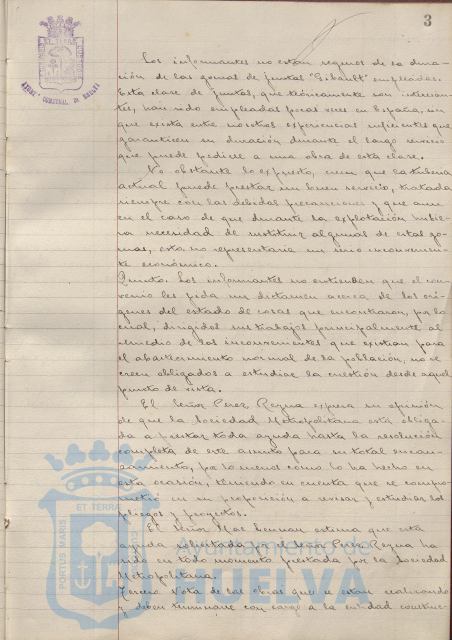 3
Los informantes no estan seguros de la dura-
ción de las gomas de juntas "Gibault" empleadas.
Esta clase de juntas, que teóricamente son interesan-
tes, han sido empleadas pocas veces en España, sin
que exista entre nosotros experiencias suficientes que
garanticen su duración durante el largo servicio
que puede pedirse a una obra de esta clase.
No obstante lo expuesto, creen que la tuberia
actual puede prestar un buen servicio, tratada
siempre con las debidas precauciones y que aun
en el caso de que durante la explotación hubie-
ra necesidad de sustituir algunas de estas go-
mas, esto no representaria un serio inconvenien-
te económico.
Quinto. Los informantes no entienden que el con-
venio les pida un dictamen acerca de los orí-
genes del estado de cosas que encontraron, por lo
cual, dirigidos sus trabajos principalmente al
remedio de los inconvenientes que existian para
el abastecimiento normal de la población, no se
creen obligados a estudiar la cuestión desde aquel
punto de vista.
El Señor Perez Reyna expresa su opinión
de que la Sociedad Metropolitana está obliga-
da a prestar toda ayuda hasta la resolución
completa de este asunto para su total encau-
zamiento, por lo menos como lo ha hecho en
esta ocasión, teniendo en cuenta que se compro-
metió en su proposición a revisar y estudiar los
pliegos y proyectos.
El Señor Mac Lennan estima que esta
ayuda solicitada por el Señor Perez Reyna ha
sido en todo momento prestada por la Sociedad
Metropolitana.
Tercero Nota de las obras que se estan realizando
y deben terminarse con cargo a la entidad construc-
ET TERRA
PORTUS MARIS
Ayuntamiento de
HUELVA